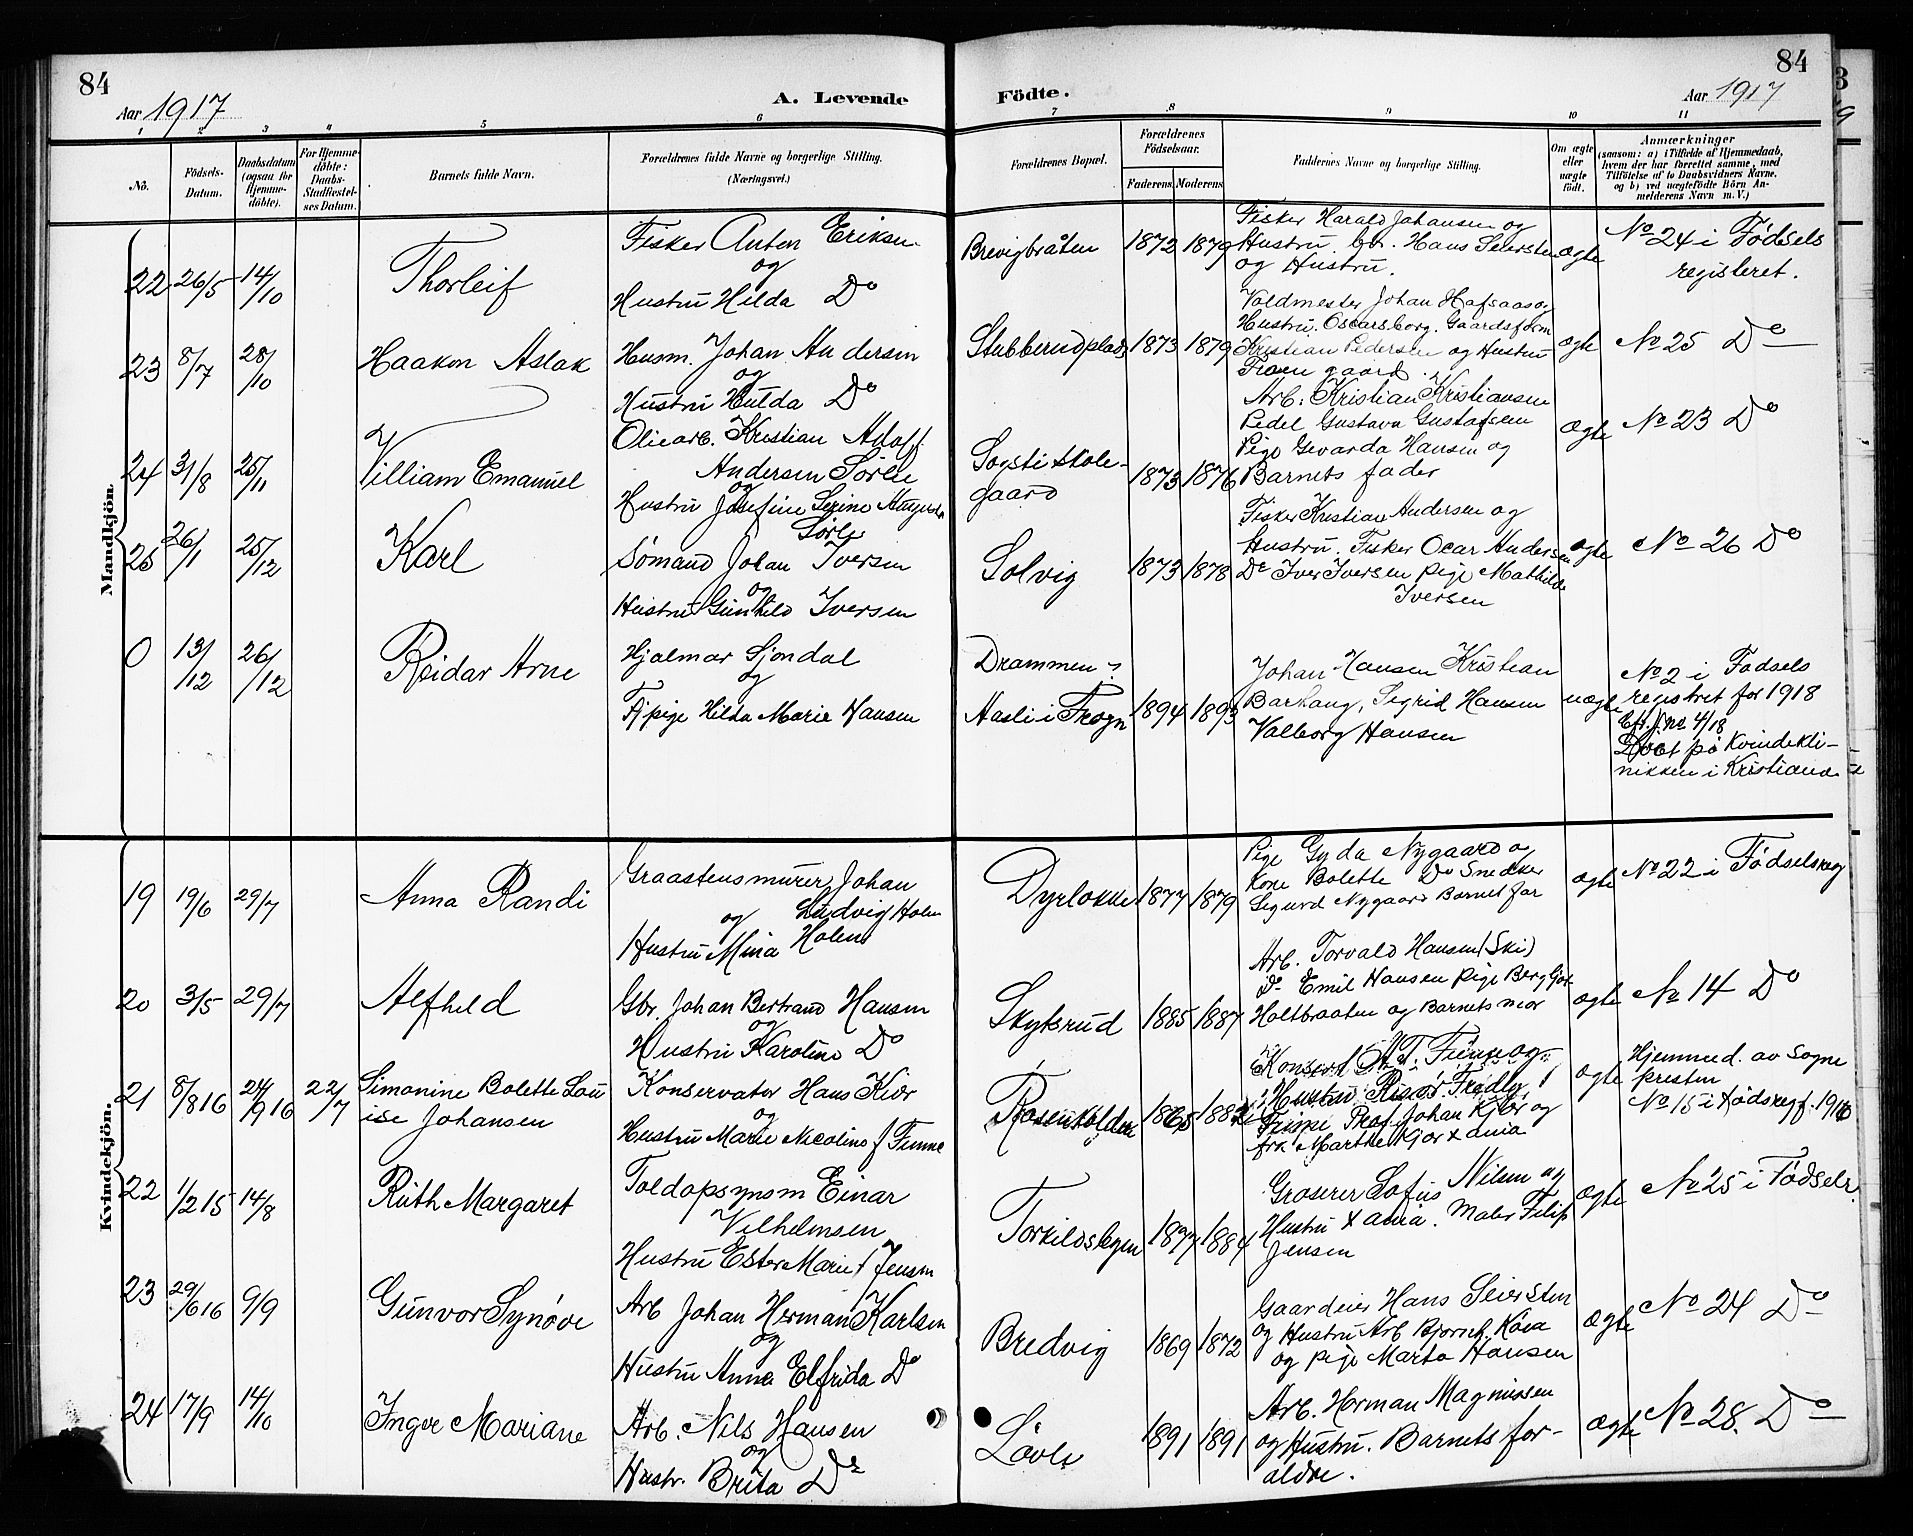 84
Aar 1917
A. Levende
Födte.
84
Aar 1917
1 2 3 4 5 6 7 8 9 10 11
No.
Födsels-
Datum.
Daabsdatum
(ogsaa for
Hjemme-
döbte).
For Hjemme-
döbte:
Daabs-
Stadfæstel-
ses Datum.
Barnets fulde Navn.
Forældrenes fulde Navne og borgerlige Stilling.
(Næringsvei.)
Forældrenes Bopæl.
Forældrenes
Födselsaar.
Faderens. Moderens.
Faddernes Navne og borgerlige Stilling.
Om ægte
eller
uægte
født.
Anmærkninger
(saasom: a) i Tilfælde af Hjemmedaab,
hvem der har forrettet samme, med
Tilföielse af to Daabsvidners Navne.
og b) ved uægtefödte Börn An-
melderens Navn m. V.)
Mandkjön.
22 26/5 14/10 Thorleif
Fisker Anton Eriksen
og
Hustru Hilda Do
Brevigbråten 1872 1879
Fisker Harald Johansen og
Hustru. Gbr. Hans Seiersten
og Hustru.
ægte
No 24 i Fødsels
registeret.
23 8/7 28/10 Haakon Aslak
Husm. Johan Andersen
og
Hustru Hulda Do
Stubberudplads 1873 1879
Voldmester Johan Hafsaas og
Hustru. Oscarsborg. Gaardsform
Kristian Pedersen og Hustru
Froen gaard.
ægte
No 25 Do
24 31/8 25/11 William Emanuel
Oliearb. Kristian Adolf
Andersen Sørli
og
Hustru Josefine Serine Augusta
Sørli
Sogsti skole-
gaard
1873 1876
Arb. Kristian Kristiansen
Pedel Gustava Gustafsen
Pige Gevarda Hansen og
Barnets fader
Ægte
No 23 Do
25 26/1 25/12 Karl
Sømand Johan Iversen
og
Hustru Gunhild Iversen
Solvig 1873 1878
Fisker Kristian Andersen og
Hustru. Fisker Ocar Andersen
Do Iver Iversen pige Mathilde
Iversen
ægte
No 26 Do
0 13/12 26/12 Reidar Arne
Hjalmar Sjondal
og
Fpige Hilda Marie Hansen
Drammen?
Aasli i Frogn 1894 1893
Johan Hansen Kristian
Barhaug, Sigrid Hansen
Valborg Hansen
uægte
No 2 i Fødsels
registret for 1918
Cfr. j. no 4/18
på Kvindekli-
nikken i Kristiania
Kvindekjön.
19 19/6 29/7 Anna Randi
Graastensmurer Johan
Ludvig Holen
og
Hustru Mina Holen
Dyrløkke 1877 1879
Pige Gyda Nygaard og
Kone Bolette Do Snedker
Sigurd Nygaard Barnets far
ægte
No 22 i Fødselsreg
20 3/5 29/7 Alfhild
Gbr. Johan Bertrand Hansen
og
Hustru Karoline Do
Skytsrud 1885 1887
Arb. Torvald Hansen (Ski)
Do Emil Hansen pige Bergljot
Holtbraaten og Barnets mor
ægte
No 14 Do
21 8/8 16 24/9 16 22/7 Simonine Bolette Lou
ise Johansen
Konservator Hans Kiær
og
Hustru Marie Nicoline f Finne
Rosenholdm 1865
og
Prof. Johan Kjær og
frk Marthe Kjær X ania
ægte
Hjemmed. av Sogne
presten
No 15 i Fødsreg f. 1916
22 1/2 15 14/8 Ruth Margaret
Toldopsynsm Einar
Vilhelmsen
Hustru Ester Marie f Jensen
Torkildsbyen 1884
Grosserer Sofus Nilsen og
Hustru X ania. Maler Filip
Jensen
ægte
No 25 i Fødselr.
23 29/6 16 9/9 Gunvor Synøve
Arb Johan Herman Karlsen
og
Hustru Anna Elfrida Do
Bredvig 1869 1872
Gaardeier Hans Seiersten
og Hustru Arb Bjarne Kåsa
og pige Marta Hansen
Ægte
No 24 Do
24 17/9 14/10 Inger Mariane
Arb. Nils Hansen
og
Hustr. Brita Do
Løvli 1891 1891
Arb. Herman Magnussen
og Hustru. Barnets for-
ældre.
Ægte
No 28. Do